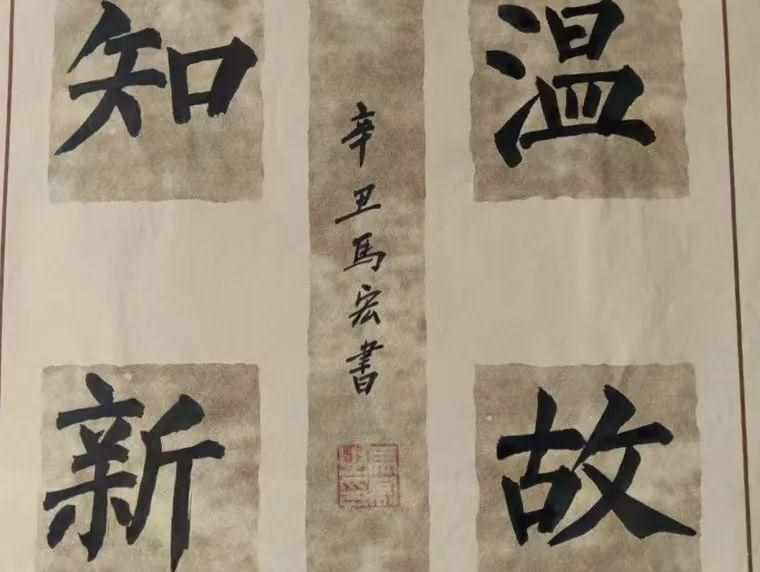 温故
知新
辛丑馬宏書